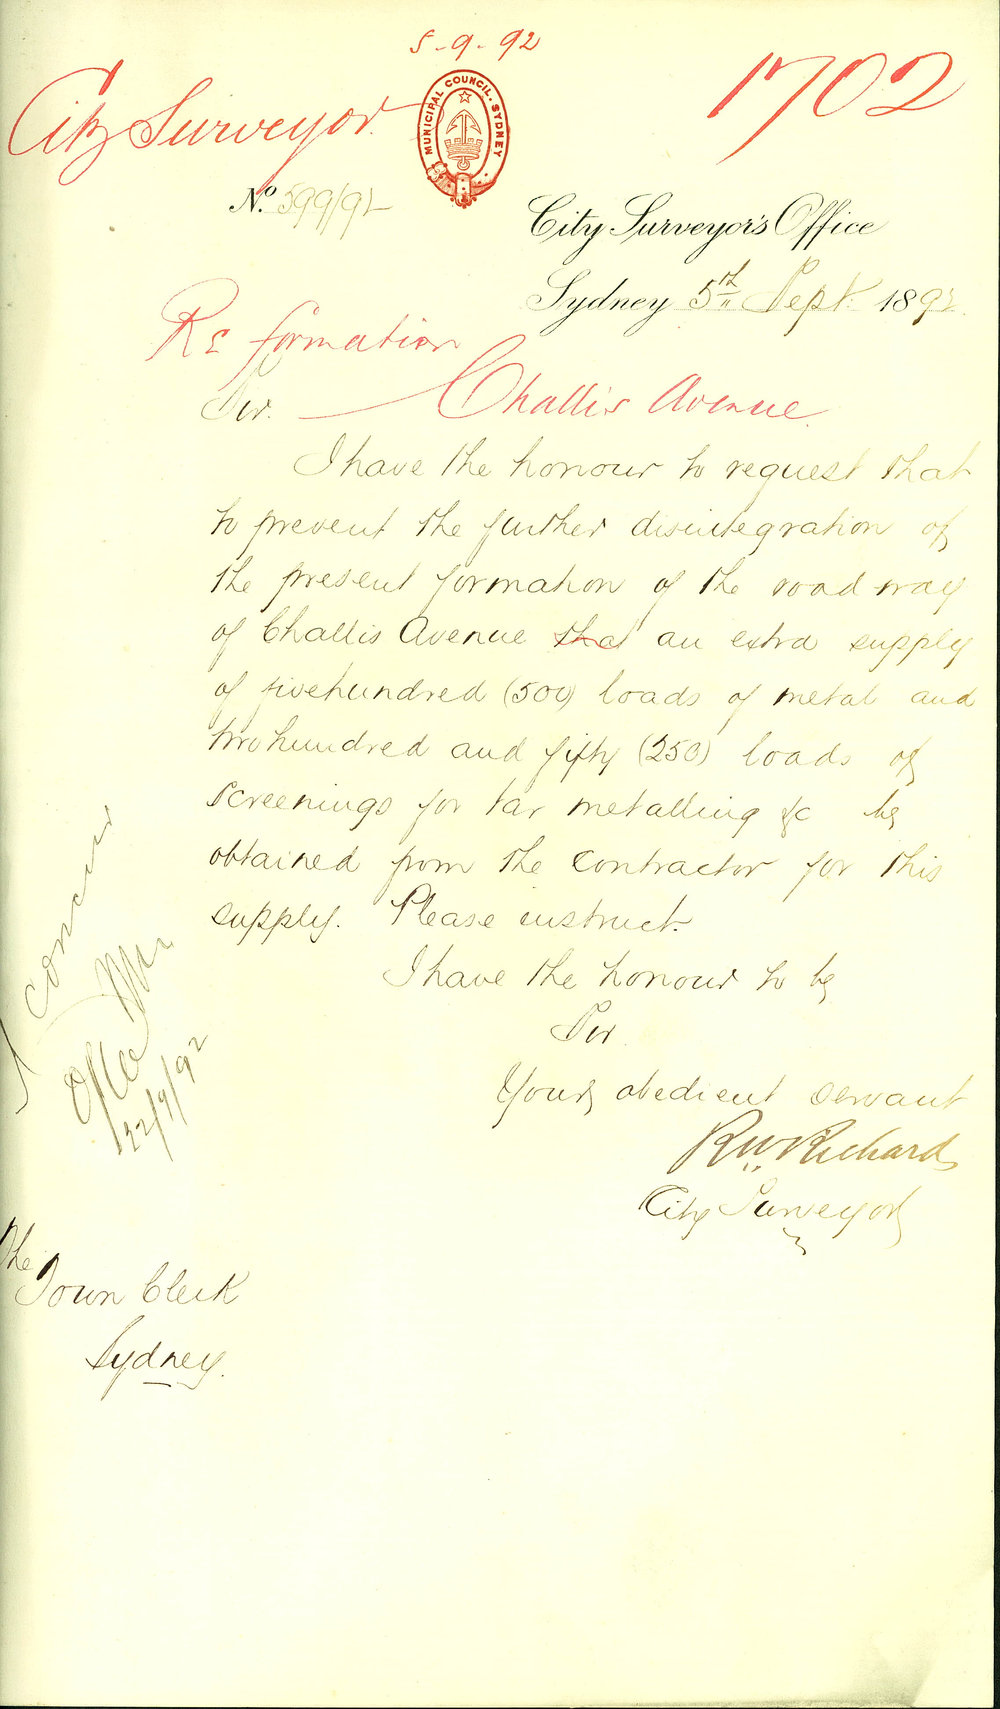 5-9-92
City Surveyor. 1702
MUNICIPAL COUNCIL. SYDNEY
No. 599/92
City Surveyor's Office
Sydney 5th Sept. 1892
Re formation
Challis Avenue.
Sir.
I have the honour to request that
to prevent the further disintegration of
the present formation of the roadway
of Challis Avenue that an extra supply
of fivehundred (500) loads of metal and
twohundred and fifty (250) loads of
screenings for tar metalling &c be
obtained from the Contractor for this
supply. Please instruct.
I have the honour to be
Sir
Your obedient servant
RW Richards
City Surveyor
I concur
22/9/92
The
Town Clerk
Sydney.